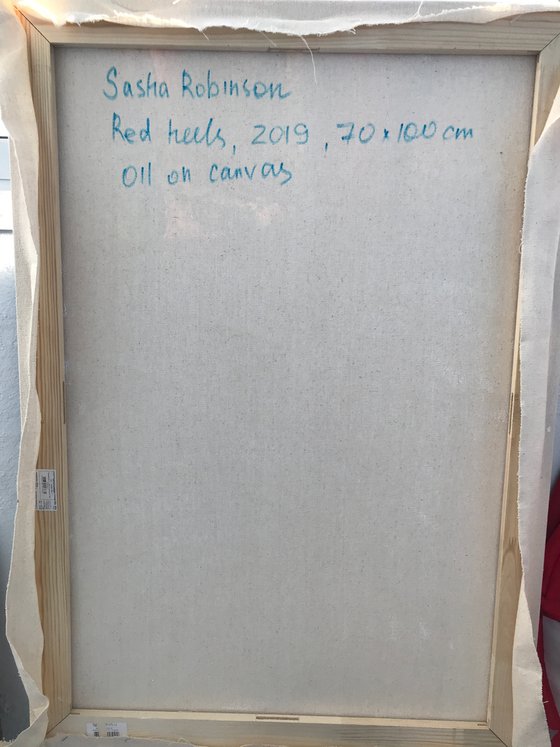 Sasha Robinson
Red heels, 2019, 70 x 100 cm
Oil on canvas